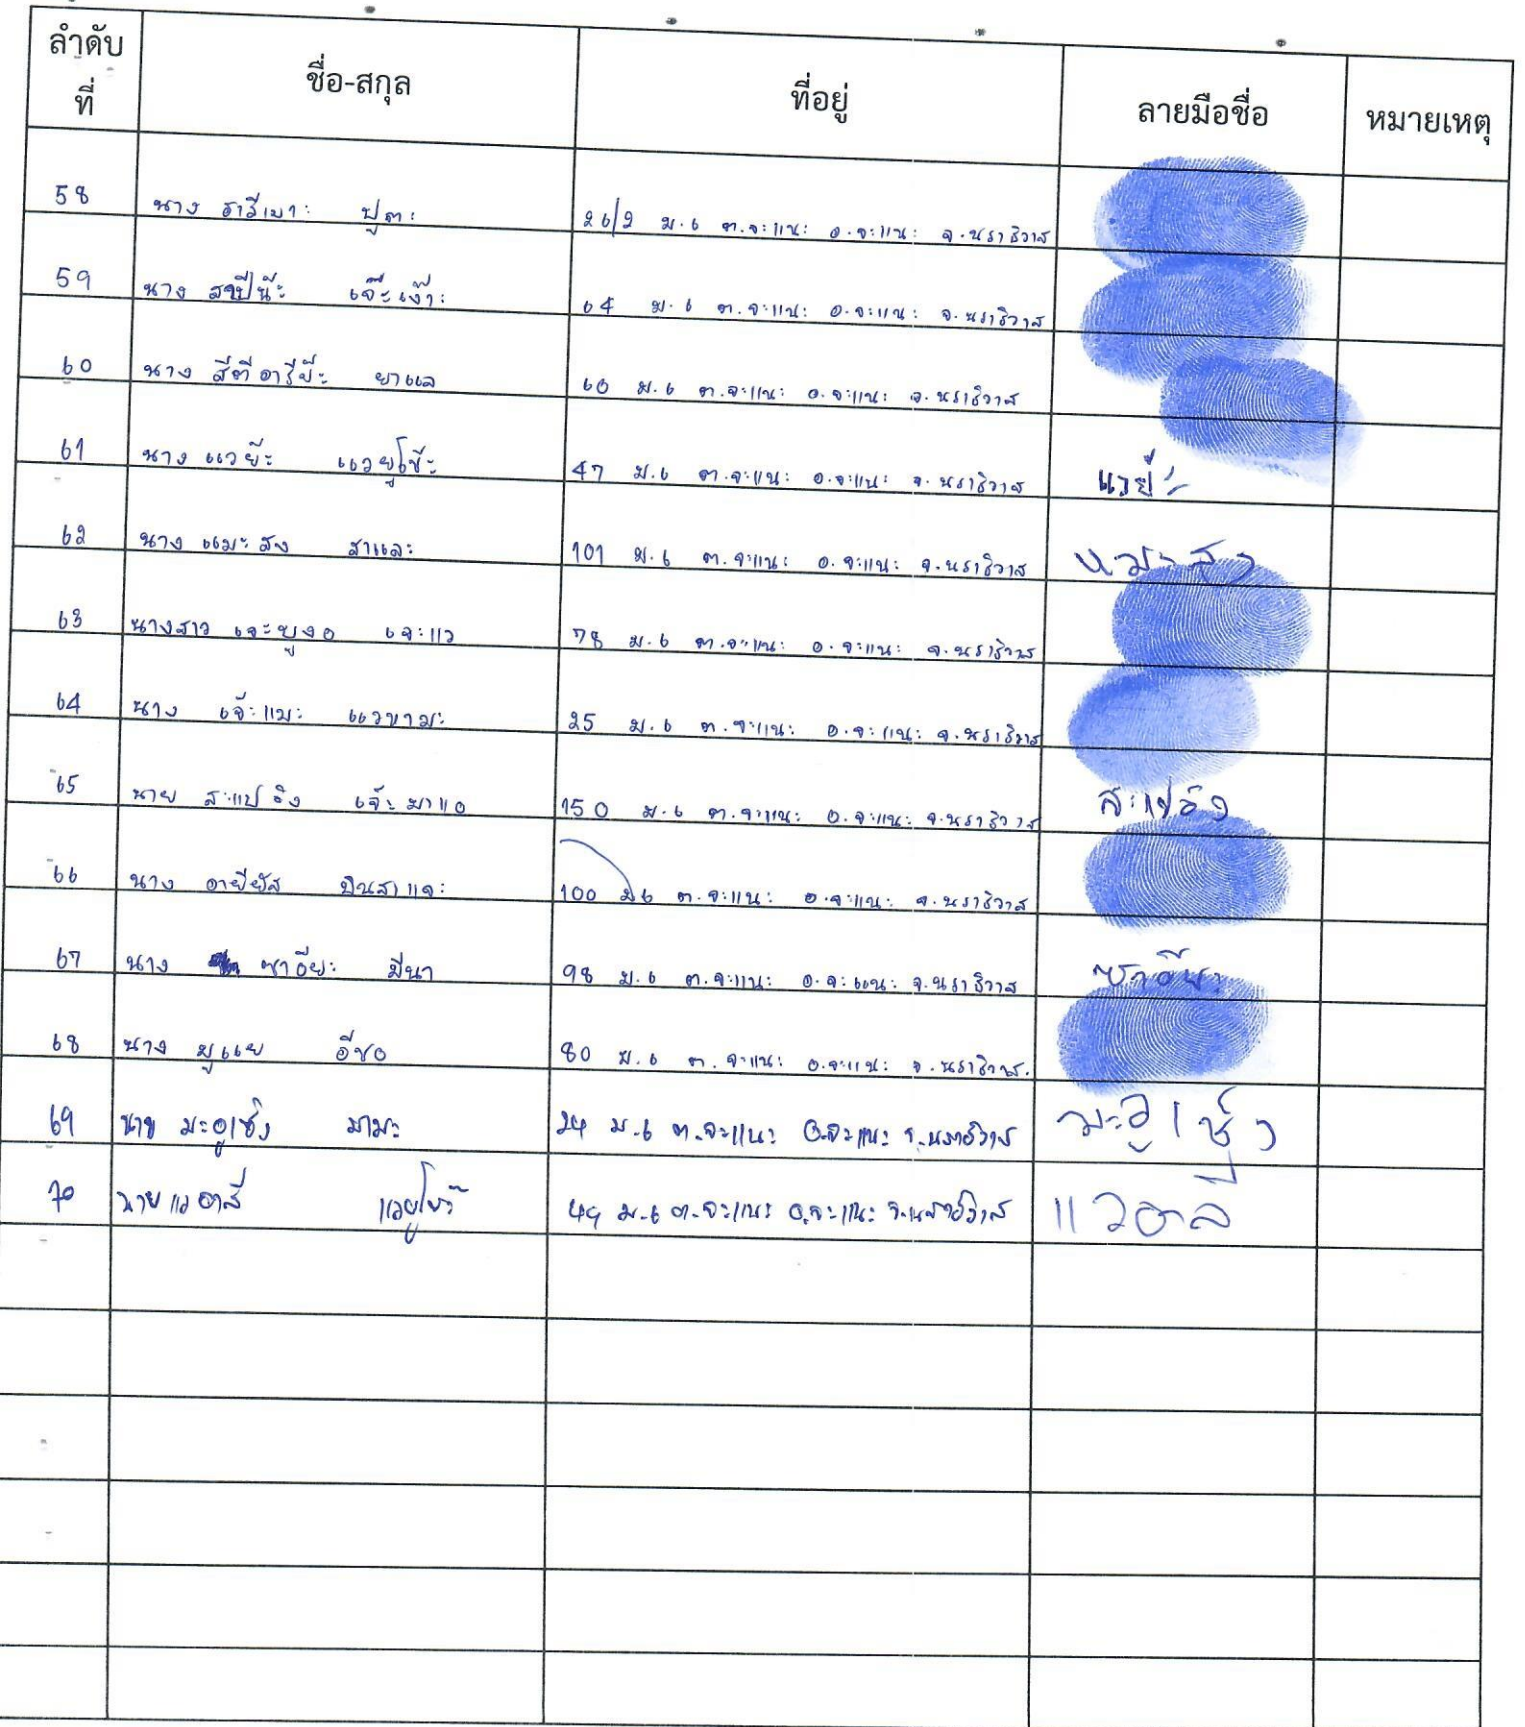 ลำดับที่ ชื่อ-สกุล ที่อยู่ ลายมือชื่อ หมายเหตุ
58 นาง ธารีเมาะ ปูตะ 26/2 ม.6 ต.จะแนะ อ.จะแนะ จ.นราธิวาส
59 นาง สาปีน๊ะ เจ๊ะเง๊าะ 64 ม.6 ต.จะแนะ อ.จะแนะ จ.นราธิวาส
60 นาง สีตีอารีย๊ะ ยาแล 60 ม.6 ต.จะแนะ อ.จะแนะ จ.นราธิวาส
61 นาง แวย๊ะ แวยูโซ๊ะ 47 ม.6 ต.จะแนะ อ.จะแนะ จ.นราธิวาส แวย๊ะ
62 นาง แมะสง สาและ 101 ม.6 ต.จะแนะ อ.จะแนะ จ.นราธิวาส แมะสง
63 นางสาว เจะยูงอ เจะแว 78 ม.6 ต.จะแนะ อ.จะแนะ จ.นราธิวาส
64 นาง เจ๊ะแมะ แวขามะ 25 ม.6 ต.จะแนะ อ.จะแนะ จ.นราธิวาส
65 นาย สะแปอิง เจ๊ะมาแอ 150 ม.6 ต.จะแนะ อ.จะแนะ จ.นราธิวาส สะแปอิง
66 นาง อายียัส 100 ม6 ต.จะแนะ อ.จะแนะ จ.นราธิวาส
67 นาง ซาอียะ มีนา 98 ม.6 ต.จะแนะ อ.จะแนะ จ.นราธิวาส ซาอียะ
68 นาง มูแย อีซอ 80 ม.6 ต.จะแนะ อ.จะแนะ จ.นราธิวาส.
69 นาย มะอูเซ็ง มามะ 24 ม.6 ต.จะแนะ อ.จะแนะ จ.นราธิวาส มะอูเซ็ง
70 นาย แวอาลี แวยูโซ๊ะ 49 ม.6 ต.จะแนะ อ.จะแนะ จ.นราธิวาส แวอาลี